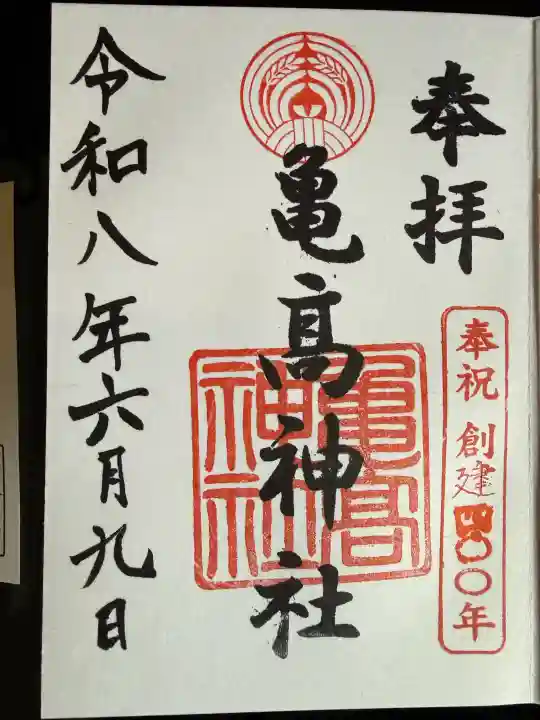 奉拝
奉祝 創建四〇〇年
亀高神社
亀高神社
令和八年六月九日